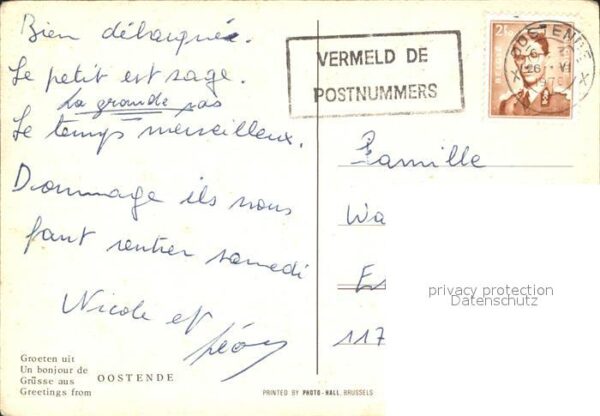 Bien débarquée.
Le petit est sage.
La grande pas
Le temps merveilleux.
Dommage ils nous
faut rentrer samedi
Nicole et
Léon
Groeten uit
Un bonjour de
Grüsse aus
Greetings from
OOSTENDE
PRINTED BY PHOTO-HALL, BRUSSELS
VERMELD DE
POSTNUMMERS
2F
BELGIE
OOSTENDE
Famille
Wa
117
privacy protection
Datenschutz